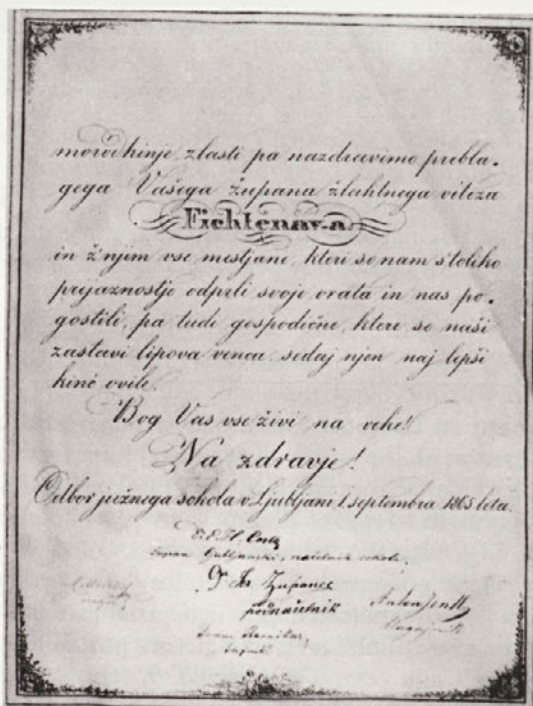 morodkinje, zlasti pa nazdravimo prebla-
gega Vašega župana žlahtnega viteza
Fichtenav-a
in ž njim vse mestjane, kteri so nam s toliko
prijaznostjo odprli svoje vrata in nas po-
gostili, pa tudi gospodične, ktere so naši
zastavi lipova venca, sedaj njen naj lepši
kinč ovile.
Bog Vas vse živi na veke!
Na zdravje!
Odbor južnega sokola v Ljubljani 1. septembra 1865 leta.
Dr. E. H. Costa
župan ljubljanski, načelnik sokola.
Dr Fr Zupanec
podnačelnik
Anton Jentl